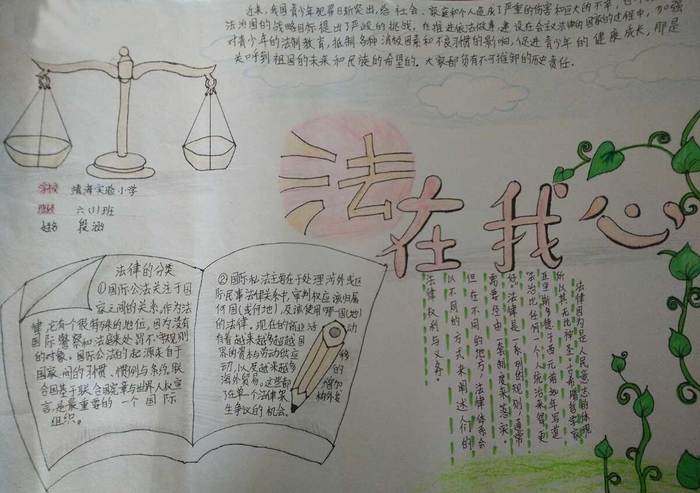 近来,我国青少年犯罪日渐突出,给社会、家庭和个人造成了严重的伤害和巨大的不幸,也
法治国的战略目标提出了严峻的挑战,在推进依法治事,建设社会主义法律的国家的过程中,加强
对青少年的法制教育,抵制各种消极因素和不良习惯的影响,促进青少年的健康成长,那是
关乎到祖国的未来和民族的希望的。大家都负有不可推卸的历史责任。
法在我心
学校 靖海实验小学
班级 六(1)班
姓名 段涵
法律的分类
①国际公法关注于国
家之间的关系,作为法
律,它有个很特殊的地位,因为没有
国际警察和法庭来处罚不守规则
的对象。国际公法的起源来自于
国家间的习惯、惯例与条约,联
合国基于联合国宪章与世界人权宣
言,是最重要的一个国际
组织。
②国际私法主要在于处理海外或区
际民事法律关系中,审判权应该归属
何国(或何地)及该使用哪一国(地)
的法律。现在的商业活动
有着越来越多超越国
界的资本与劳动供应
以及越来越多
海外贸易。这些都增加
了在单个法律架构外发
生争议的机会。
法律因为是人民意志的体现
所以其无比神圣。古希腊哲学家
亚里斯多德于西元前350年写道
法治比任何一个人统治来得更
好。法律是一系列的规则,通常
需要经由一套制度来落实。
但在不同的地方,法律体系会
以不同的方式来阐述人们的
法律权利与义务。